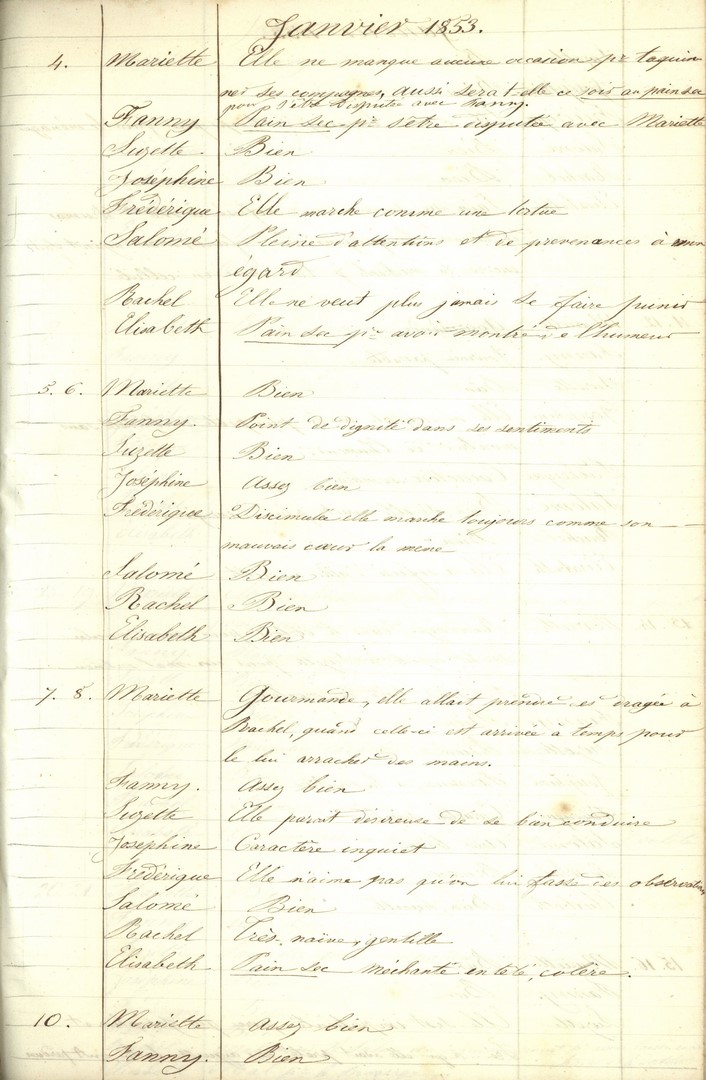 Janvier 1853.
4. Mariette Elle ne manque aucune occasion pr taquin
ner ses compagnes, aussi sera t'elle ce soir au pain sec
pour s'être disputée avec Fanny.
Fanny Pain sec pr s'être disputée avec Mariette
Suzette Bien
Joséphine Bien
Frédérique Elle marche comme une tortue
Salomé Pleine d'attentions et de prevenances à mon
égard
Rachel Elle ne veut plus jamais se faire punir
Elisabeth Pain sec pr avoir montré de l'humeur
5. 6. Mariette Bien
Fanny. Point de dignité dans ses sentiments
Suzette Bien
Joséphine Assez bien
Frédérique Discimulée elle marche toujours comme son
mauvais cœur la mène
Salomé Bien
Rachel Bien
Elisabeth Bien
7. 8. Mariette Gourmande, elle allait prendre à
Rachel, quand celle-ci est arrivée à temps pour
le lui arracher des mains.
Fanny. Assez bien
Suzette Elle parait désireuse de se bien conduire
Joséphine Caractère inquiet
Frédérique Elle n'aime pas qu'on lui fasse des observations
Salomé Bien
Rachel Très naïve, gentille
Elisabeth Pain sec méchante enteté, colère.
10. Mariette Assez bien
Fanny. Bien